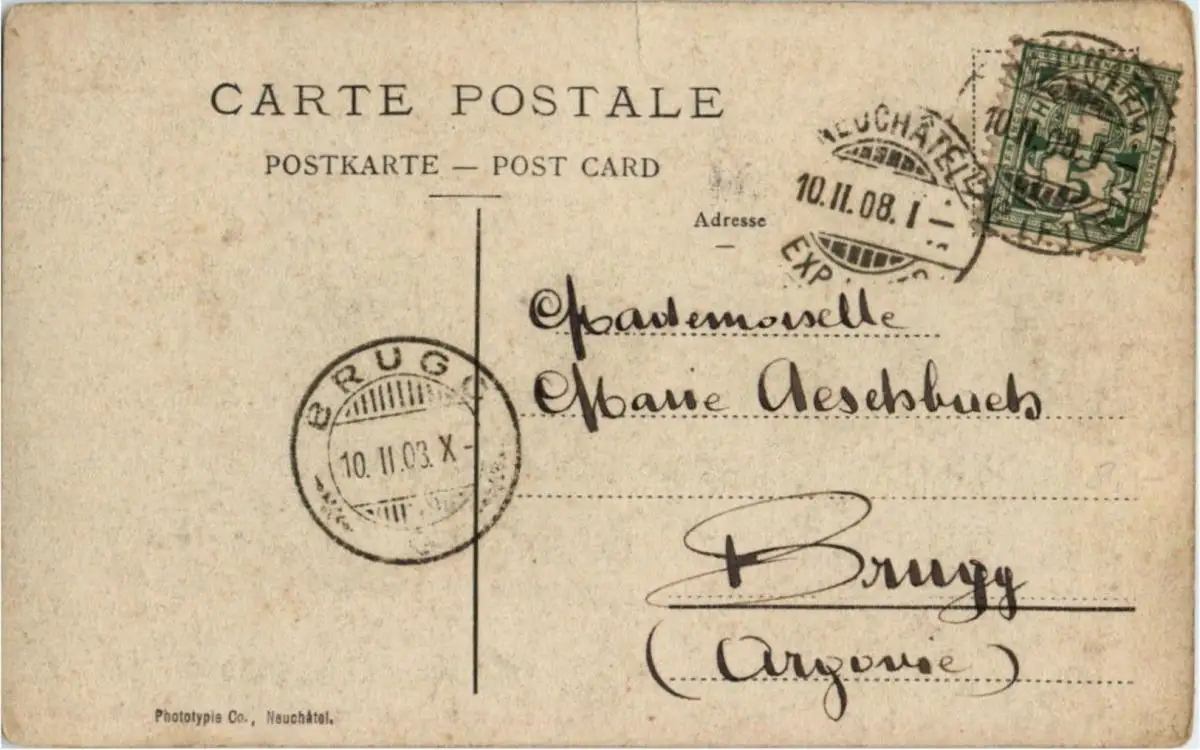 CARTE POSTALE
POSTKARTE — POST CARD
Adresse
NEUCHÂTEL
10.II.08.I –
EXP
10.II.08.I
Mademoiselle
Marie Aeschbach
BRUGG
10.II.08.X –
Brugg
(Argovie)
Phototypie Co., Neuchâtel.